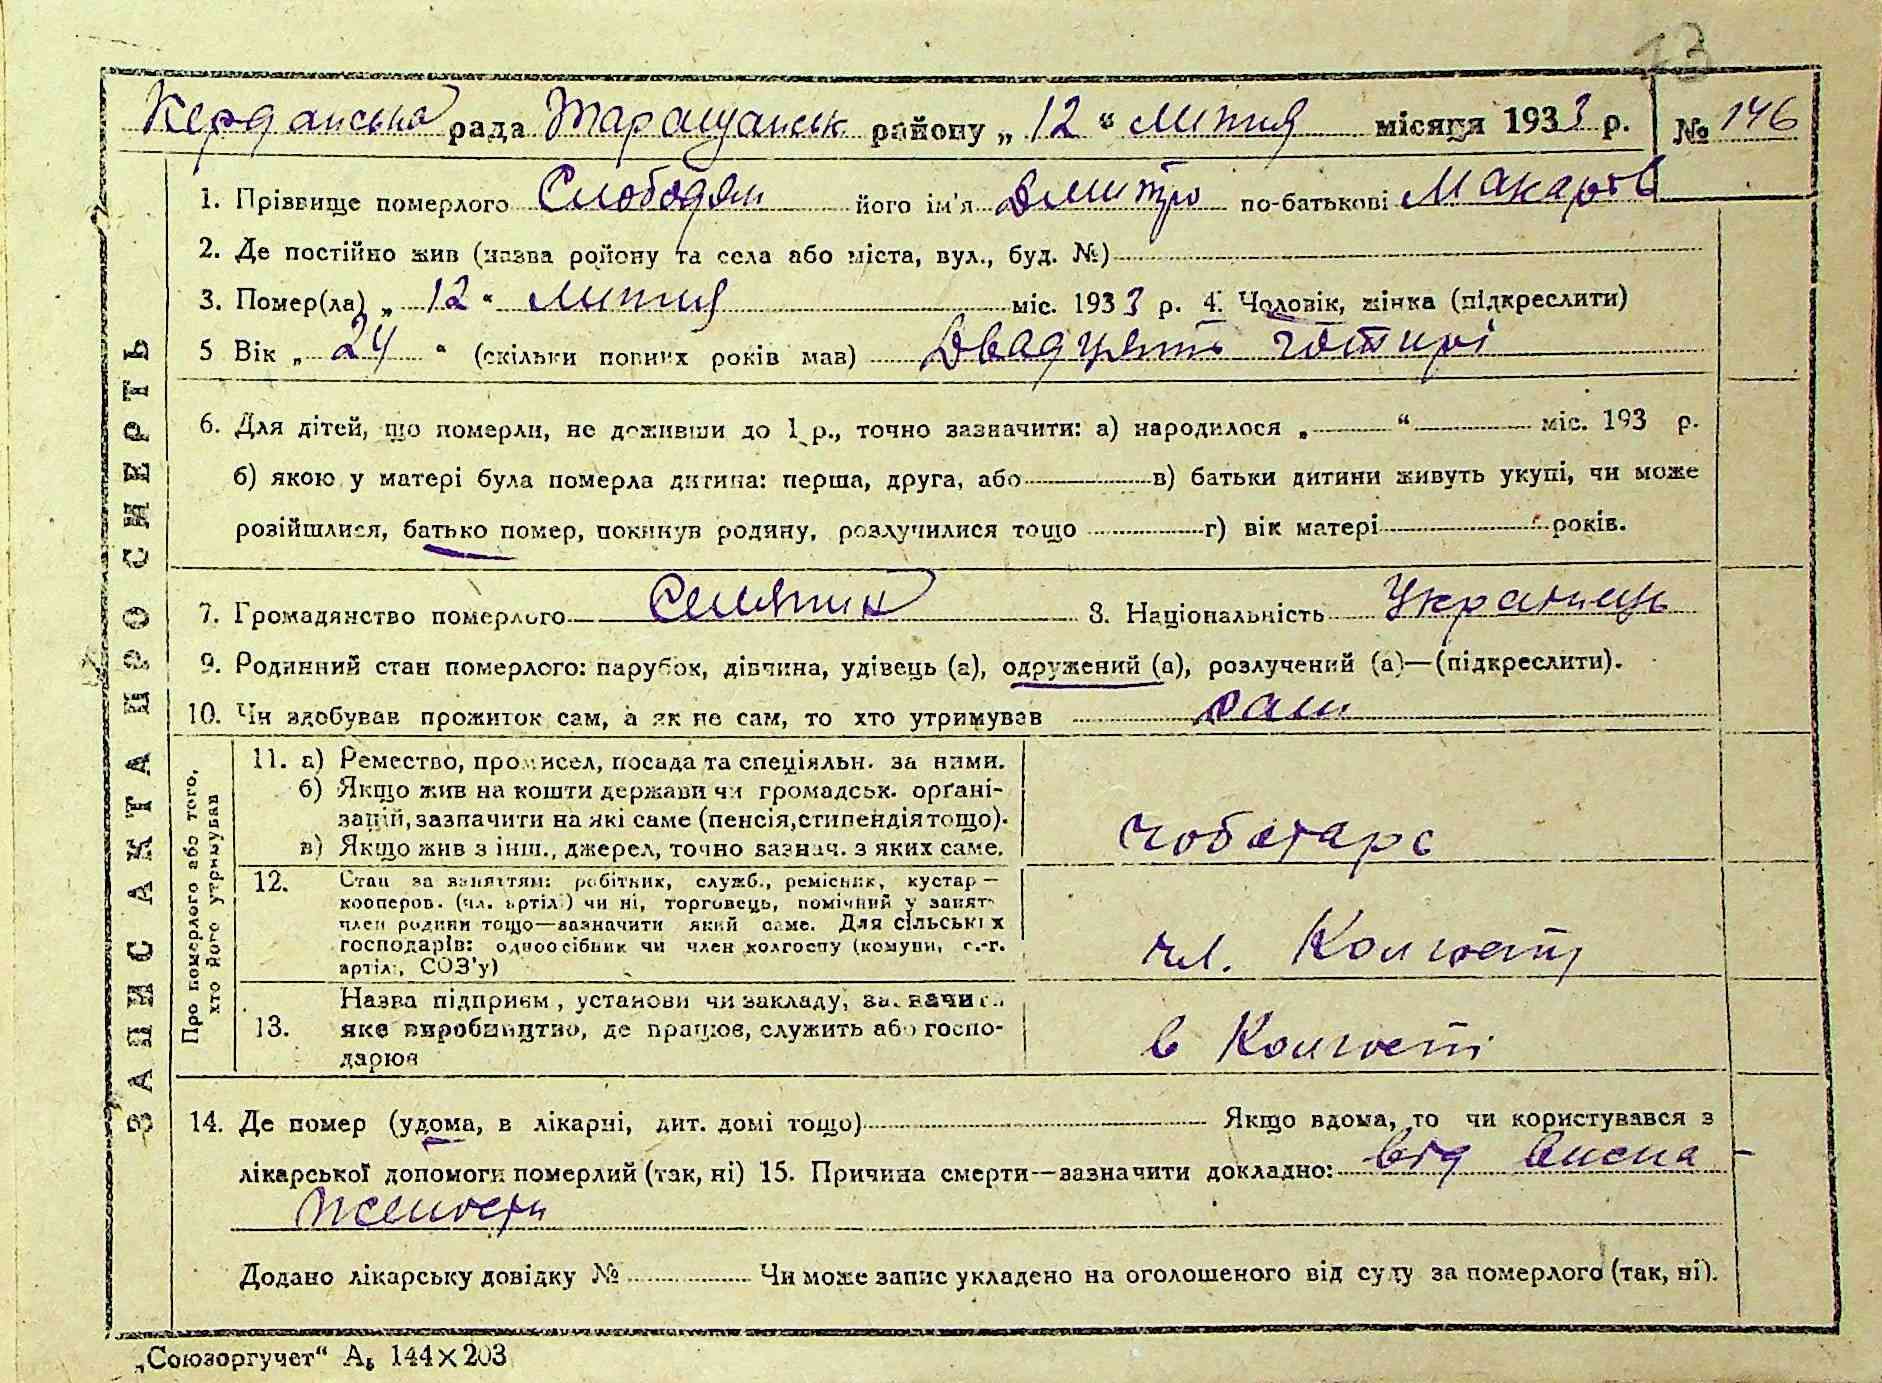 13
Керданська рада Таращанськ району „ 12 “ липня місяця 1933 р. № 146
1. Прізвище померлого Слободян його ім'я Дмитро по-батькові Макарів
2. Де постійно жив (назва району та села або міста, вул., буд. №)
3. Помер(ла) „ 12 “ липня міс. 1933 р. 4. Чоловік, жінка (підкреслити)
5 Вік „ 24 “ (скільки повних років мав) Двадцять чотирі
6. Для дітей, що померли, не доживши до 1 р., точно зазначити: а) народилося „ “ міс. 193 р.
б) якою у матері була померла дитина: перша, друга, або в) батьки дитини живуть укупі, чи може
розійшлися, батько помер, покинув родину, розлучилися тощо г) вік матері років.
7. Громадянство померлого Селянин 8. Національність Українець
9. Родинний стан померлого: парубок, дівчина, удівець (а), одружений (а), розлучений (а)—(підкреслити).
10. Чи здобував прожиток сам, а як не сам, то хто утримував сам
11. а) Ремество, промисел, посада та спеціяльн. за ними.
б) Якщо жив на кошти держави чи громадськ. орґані-
зацій, зазначити на які саме (пенсія, стипендія тощо).
в) Якщо жив з інш., джерел, точно зазнач. з яких саме.
чоботарь
12. Стан за заняттям: робітник, служб., ремісник, кустар—
кооперов. (чл. артілі) чи ні, торговець, помічний у занят-
член родини тощо—зазначити який саме. Для сільських
господарів: одноосібник чи член колгоспу (комуни, с.-г.
артілі, СОЗ'у)
чл. Колгоспу
13. Назва підприєм, установи чи закладу, зазначити
яке виробництво, де працює, служить або госпо-
дарює
в Колгоспі
14. Де помер (удома, в лікарні, дит. домі тощо) Якщо вдома, то чи користувався з
лікарської допомоги померлий (так, ні) 15. Причина смерти—зазначити докладно: від висна-
жености
Додано лікарську довідку № Чи може запис укладено на оголошеного від суду за померлого (так, ні).
ЗАПИС АКТА ПРО СМЕРТЬ
Про померлого або того,
хто його утримував
„Союзоргучет“ А₅ 144×203